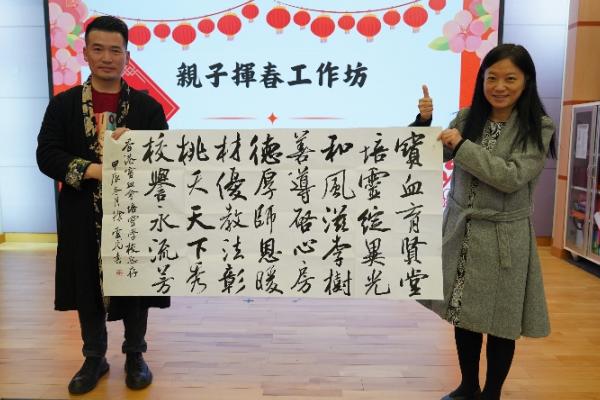 親子揮春工作坊
寶血育賢堂
培靈綻異光
和風滋李樹
善導啓心房
德厚師恩暖
材優教法彰
桃夭天下秀
校譽永流芳
香港寶血會培靈學校惠存
甲辰冬月徐雲書